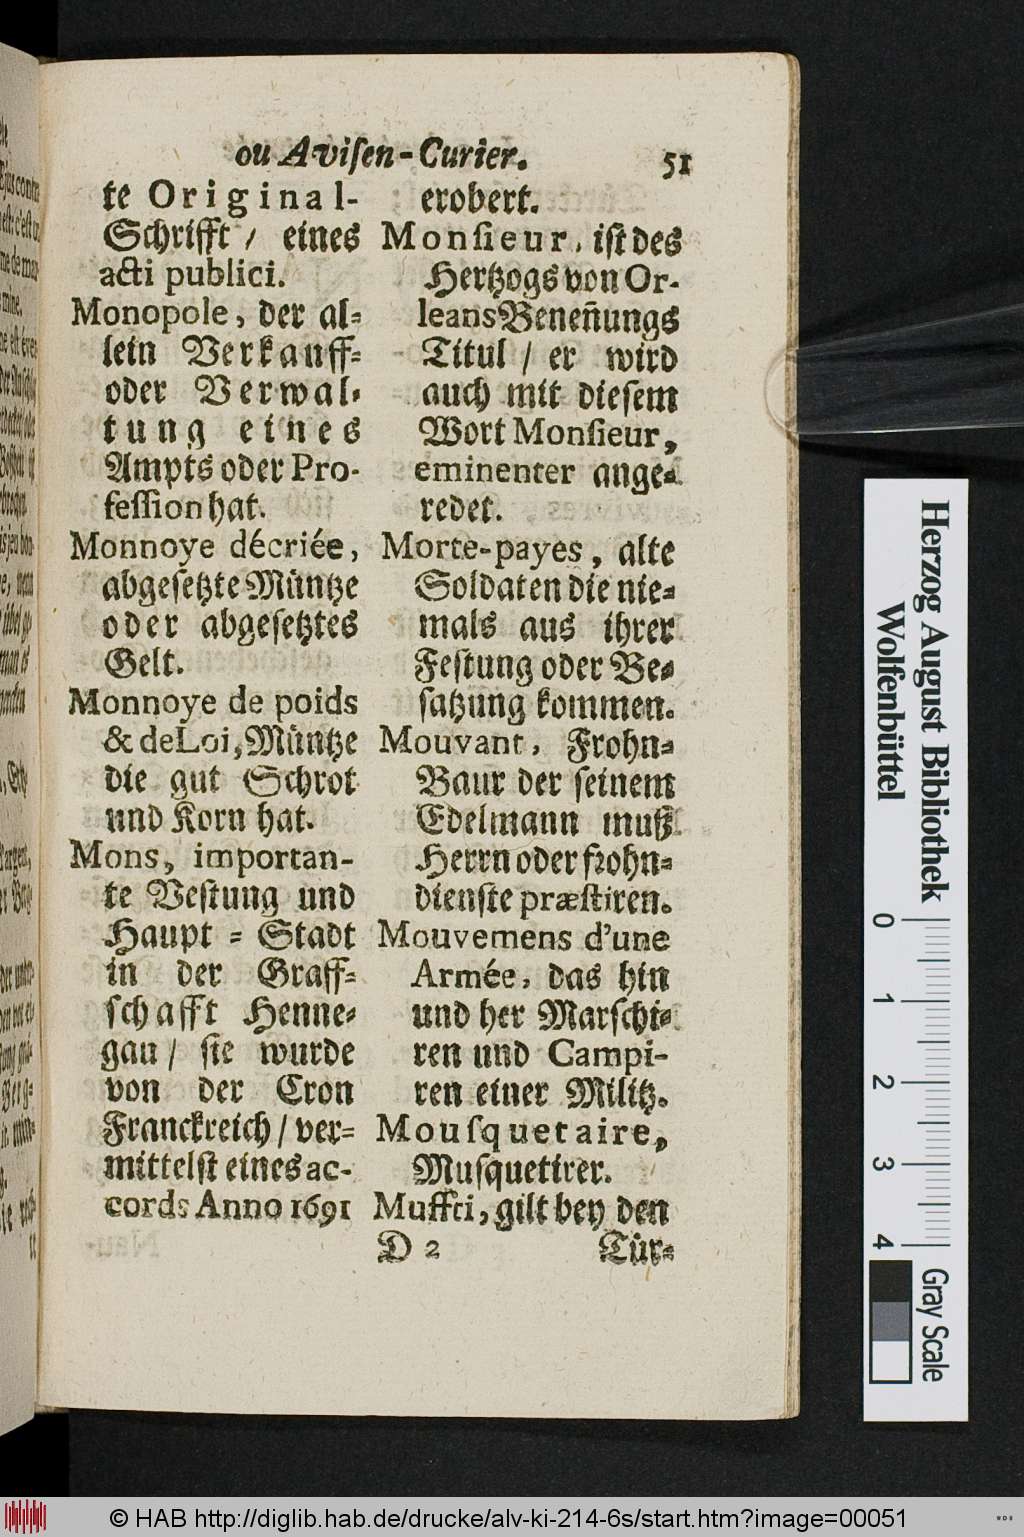 ou Aviſen-Curier. 51
te Original-
Schrifft / eines
acti publici.
Monopole, der al-
lein Verkauff-
oder Verwal-
tung eines
Ampts oder Pro-
feſſion hat.
Monnoye décriée,
abgeſetzte Müntze
oder abgeſetztes
Gelt.
Monnoye de poids
& de Loi, Müntze
die gut Schrot
und Korn hat.
Mons, importan-
te Veſtung und
Haupt-Stadt
in der Graff-
ſchafft Henne-
gau / ſie wurde
von der Cron
Franckreich / ver-
mittelſt eines ac-
cords Anno 1691
erobert.
Monſieur, iſt des
Hertzogs von Or-
leans Beneñungs
Titul / er wird
auch mit dieſem
Wort Monſieur,
eminenter ange-
redet.
Morte-payes, alte
Soldaten die nie-
mals aus ihrer
Feſtung oder Be-
ſatzung kommen.
Mouvant, Frohn-
Baur der ſeinem
Edelmann muß
Herrn oder frohn-
dienſte præſtiren.
Mouvemens d'une
Armée, das hin
und her Marſchi-
ren und Campi-
ren einer Militz.
Mouſquetaire,
Muſquetirer.
Muffti, gilt bey den
D 2 Tür-
Herzog August Bibliothek
Wolfenbüttel
0 1 2 3 4
Gray Scale
© HAB http://diglib.hab.de/drucke/alv-ki-214-6s/start.htm?image=00051